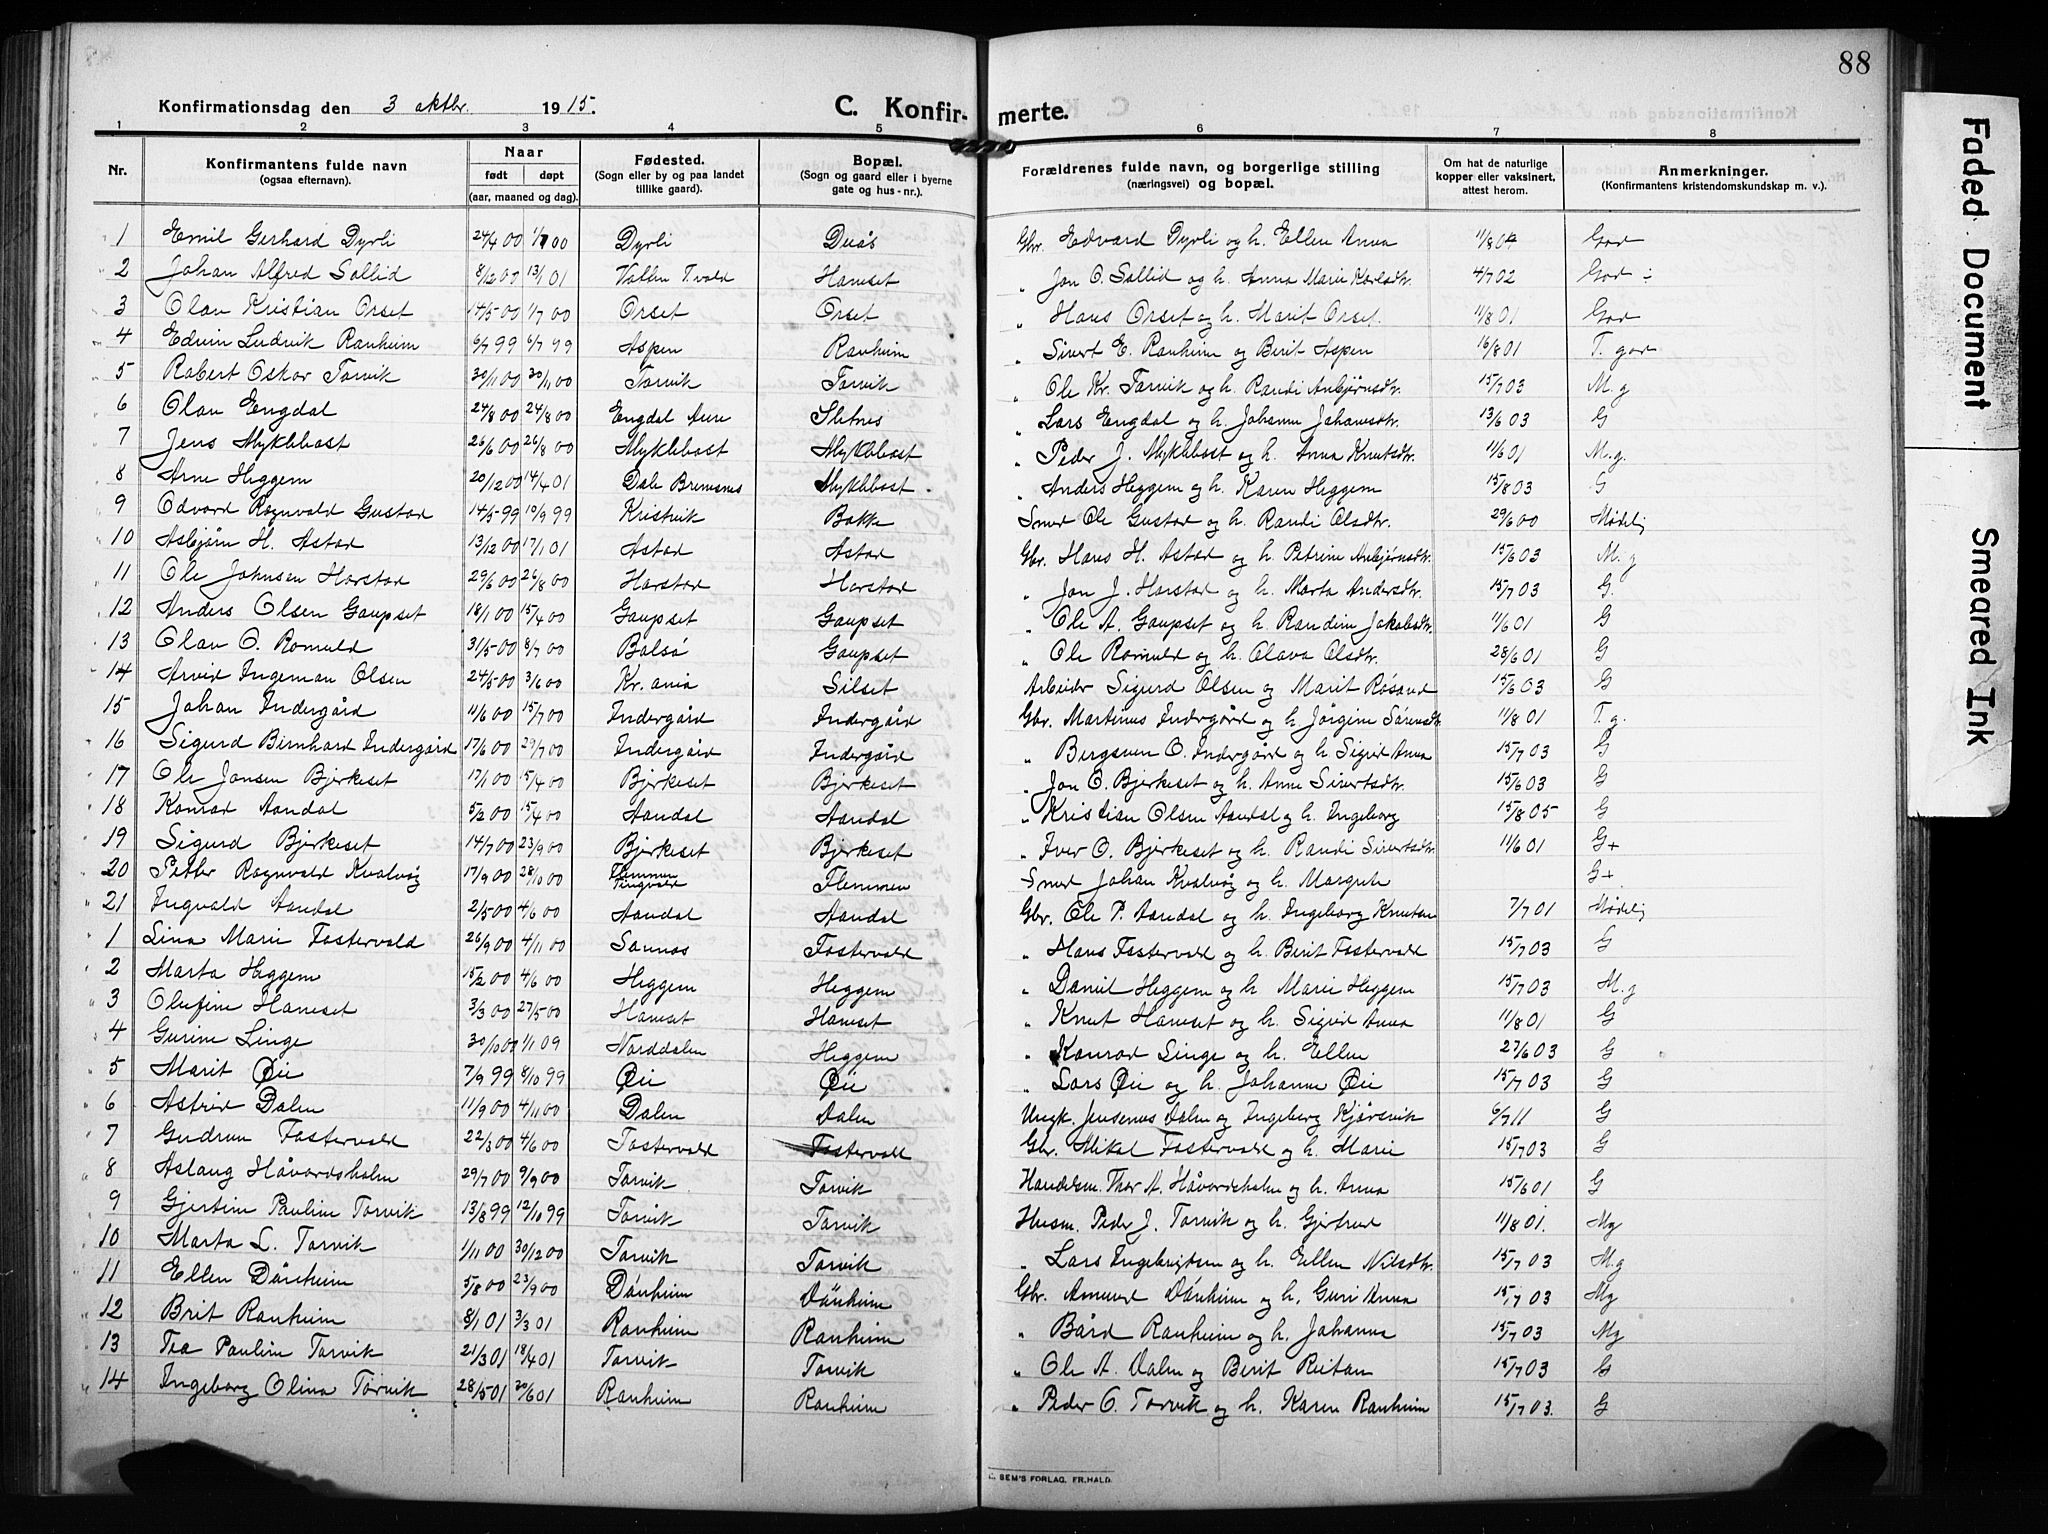 88
Konfirmationsdag den 3 oktbr. 1915.
C. Konfirmerte.
1 2 3 4 5 6 7 8
Nr. Konfirmantens fulde navn (ogsaa efternavn). Naar født døpt (aar, maaned og dag). Fødested. (Sogn eller by og paa landet tillike gaard). Bopæl. (Sogn og gaard eller i byerne gate og hus-nr.). Forældrenes fulde navn, og borgerlige stilling (næringsvei) og bopæl. Om hat de naturlige kopper eller vaksinert, attest herom. Anmerkninger. (Konfirmantens kristendomskundskap m. v.).
1 Emil Gerhard Dyrli 24/4 00 1/7 00 Dyrli Duås Gbr. Edvard Dyrli og h. Ellen Anna 11/8 04 God
2 Johan Alfred Sollid 8/12 00 13/1 01 Vollen T.vold Hanset " Jon O. Sollid og h. Anna Marie Karlsdtr. 4/7 02 God ÷
3 Olav Kristian Orset 14/5 00 1/7 00 Orset Orset " Hans Orset og h. Marit Orset. 11/8 01 God
4 Edvin Ludvik Ranheim 6/7 99 6/7 99 Aspen Ranheim " Sivert E. Ranheim og Berit Aspen 16/8 01 T. god
5 Robert Oskar Torvik 30/11 00 30/11 00 Torvik Torvik " Ole Kr. Torvik og h. Randi Anbjørnsdtr. 15/7 03 M. g
6 Olav Engdal 24/8 00 24/8 00 Engdal Aure Sletnes " Lars Engdal og h. Johanne Johanesdtr. 13/6 03 G
7 Jens Myklebost 26/6 00 26/8 00 Myklebost Myklebost " Peder J. Myklebost og h. Anna Knutsdtr. 11/6 01 M. g.
8 Arne Heggem 20/12 00 14/4 01 Dale Bremsnes Myklebost " Anders Heggem og h. Karen Heggem 15/8 03 G
9 Edvard Ragnvald Gustad 14/5 99 10/9 99 Kristvik Bakke Smed Ole Gustad og h. Randi Olsdtr. 29/6 00 Mådelig
10 Asbjørn H. Astad 13/12 00 17/1 01 Astad Astad Gbr. Hans H. Astad og h. Petrine Anbjørnsdtr. 15/6 03 M. g
11 Ole Johnsen Harstad 29/6 00 26/8 00 Harstad Harstad " Jon J. Harstad og h. Marta Andersdtr. 15/7 03 G.
12 Anders Olsen Gaupset 18/1 00 15/4 00 Gaupset Gaupset " Ole A. Gaupset og h. Randine Jakobsdtr. 11/6 01 G
13 Olav O. Romuld 31/5 00 8/7 00 Bolsø Gaupset " Ole Romuld og h. Olava Olsdtr. 28/6 01 G
14 Arvid Ingeman Olsen 24/5 00 3/6 00 Kr. ania Silset Arbeider Sigurd Olsen og Marit Røsand 15/6 03 G
15 Johan Indergård 11/6 00 15/7 00 Indergård Indergård Gbr. Martinus Indergård og h. Jørgine Sørensdtr. 11/8 01 T. g.
16 Sigurd Bernhard Indergård 17/6 00 29/7 00 Indergård Indergård " Bergsven O. Indergård og h. Sigrid Anna 15/7 03 G
17 Ole Jonsen Bjerkeset 17/1 00 15/4 00 Bjerkeset Bjerkeset " Jon O. Bjerkeset og h. Anne Sivertsdtr. 15/6 03 G
18 Konrad Aandal 5/2 00 15/4 00 Aandal Aandal " Kristian Olsen Aandal og h. Ingeborg 15/8 05 G
19 Sigurd Bjerkeset 14/7 00 23/9 00 Bjerkeset Bjerkeset " Iver O. Bjerkeset og h. Randi Sivertsdtr. 11/6 01 G+
20 Petter Ragnvald Kvalvåg 17/9 00 28/10 00 Flemmen Tingvold Flemmen Smed Johan Kvalvåg og h. Margrete G+
21 Ingvald Aandal 2/5 00 4/6 00 Aandal Aandal Gbr. Ole P. Aandal og h. Ingeborg Knutsen 7/7 01 Mådelig
1 Lina Marie Fostervold 26/9 00 4/11 00 Sannes Fostervold " Hans Fostervold og h. Berit Fostervold 15/7 03 G
2 Marta Heggem 15/2 00 4/6 00 Heggem Heggem " Daniel Heggem og h. Marie Heggem 15/7 03 M. g
3 Olufine Hanset 3/3 00 27/5 00 Hanset Hanset " Knut Hanset og h. Sigrid Anna 11/8 01 G
4 Gurine Linge 30/10 00 1/1 09 Norddalen Heggem " Konrad Linge og h. Ellen 27/6 03 G
5 Marit Øie 7/9 99 8/10 99 Øie Øie " Lars Øie og h. Johanne Øie 15/7 03 G
6 Astrid Dalen 11/9 00 4/11 00 Dalen Dalen Ungk. Jensenus Dalen og Ingeborg Kjørsvik 6/7 11 G
7 Gudrun Fostervold 22/3 00 4/6 00 Fostervold Fostervold Gbr. Mikal Fostervold og h. Marie 15/7 03 G
8 Aslaug Håvardsholm 29/7 00 9/9 00 Torvik Torvik Handelsm. Thor A. Håvardsholm og h. Anna 15/6 01 G
9 Gjertine Pauline Torvik 13/8 99 12/10 99 Torvik Torvik Husm. Peder J. Torvik og h. Gjertrud 11/8 01. Mg
10 Marta L. Torvik 1/11 00 30/12 00 Torvik Torvik " Lars Ingebrigtsen og h. Ellen Nilsdtr. 15/7 03 M. g
11 Ellen Dånheim 5/8 00 23/9 00 Dånheim Dånheim Gbr. Amund Dånheim og h. Guri Anna 15/7 03 Mg
12 Brit Ranheim 8/1 01 3/3 01 Ranheim Ranheim " Bård Ranheim og h. Johanna 15/7 03 Mg
13 Tea Pauline Torvik 21/3 01 18/4 01 Torvik Torvik " Ole A. Dalen og Berit Reitan 15/7 03 G
14 Ingeborg Olina Torvik 28/5 01 20/6 01 Ranheim Ranheim " Peder O. Torvik og h. Karen Ranheim 15/7 03. G
SEM'S FORLAG, FR.HALD.
Faded Document
Smeared Ink